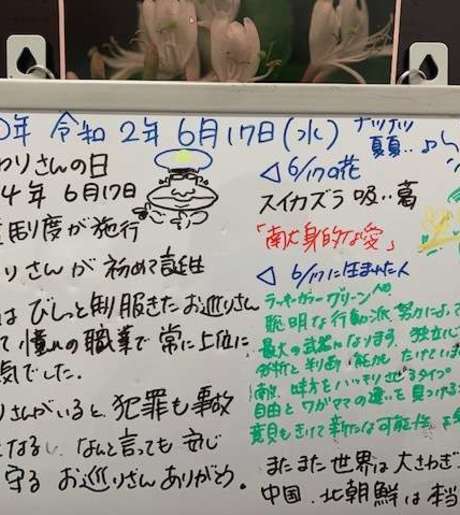 0年 令和2年6月17日(水)
ナツナツ
夏夏‥
わりさんの日
4年 6月17日
制度が施行
りさんが 初めて誕生
は びしっと制服きたお巡りさん
て 憧れの職業で 常に上位に
気でした.
りさんがいると、犯罪も事故
となるし、なんと言っても 安心
守る お巡りさんありがとう。
◁ 6/17の花
スイカズラ 吸い葛
「献身的な愛」
◁ 6/17に生まれた人
ラッキーカラーグリーン
聡明な行動派 努力によって
最大の武器になります. 独立し
分析と判断 能力 たけていま
敵、味方をハッキリさせるタイプ
自由とワガママの違いを見つける
意見もきいて新たな可能性
またまた世界は大さわぎ
中国、北朝鮮は本当